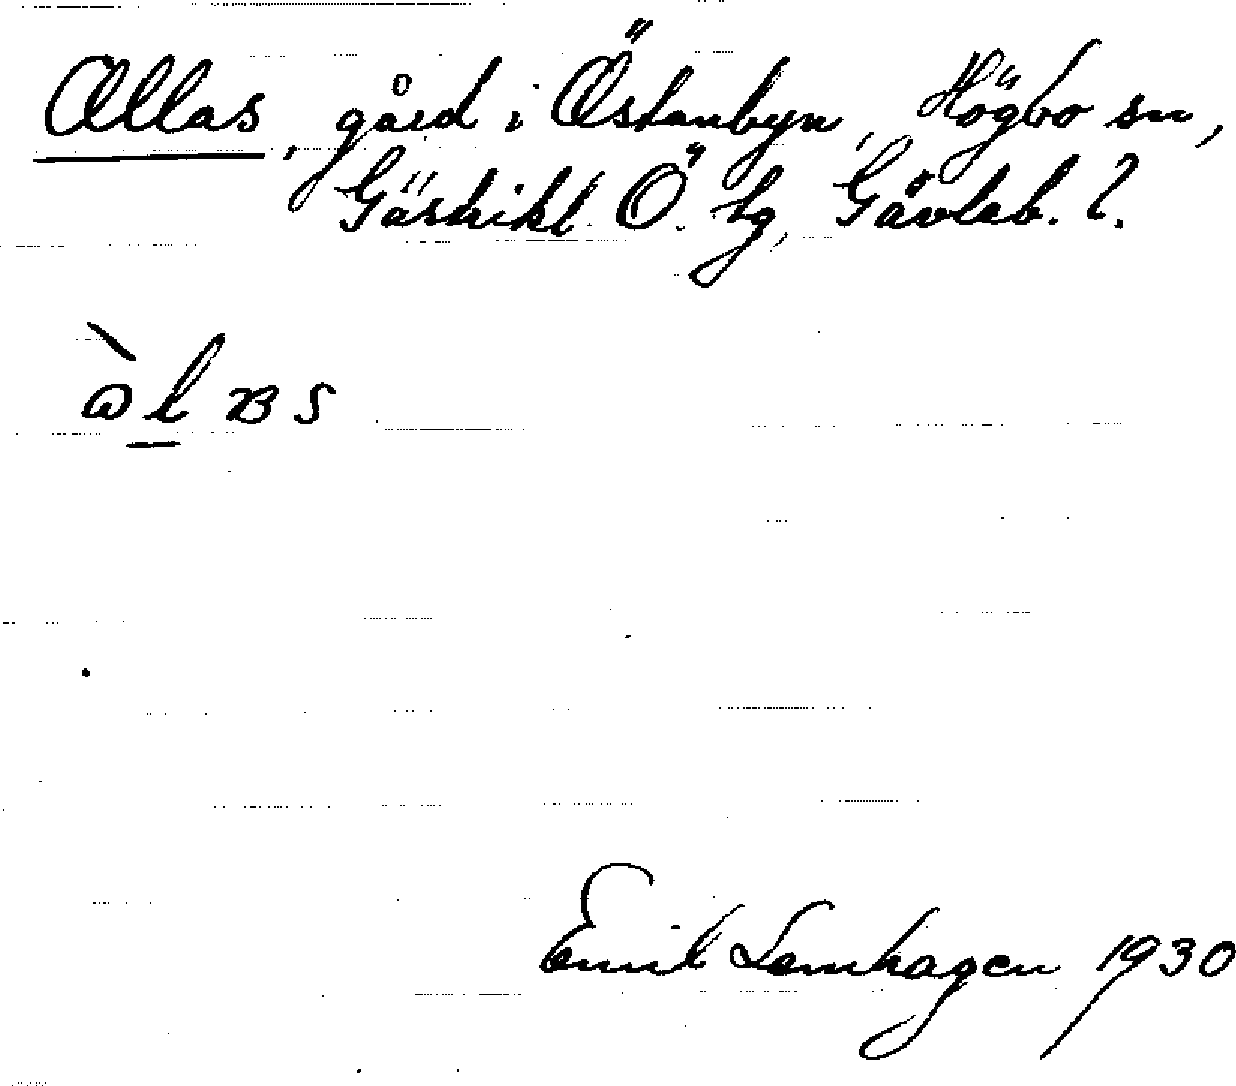 Ollas, gård i Östanbyn, Högbo sn,
Gästrikl. Ö. tg, Gävleb. l.
Emil Lemhagen 1930